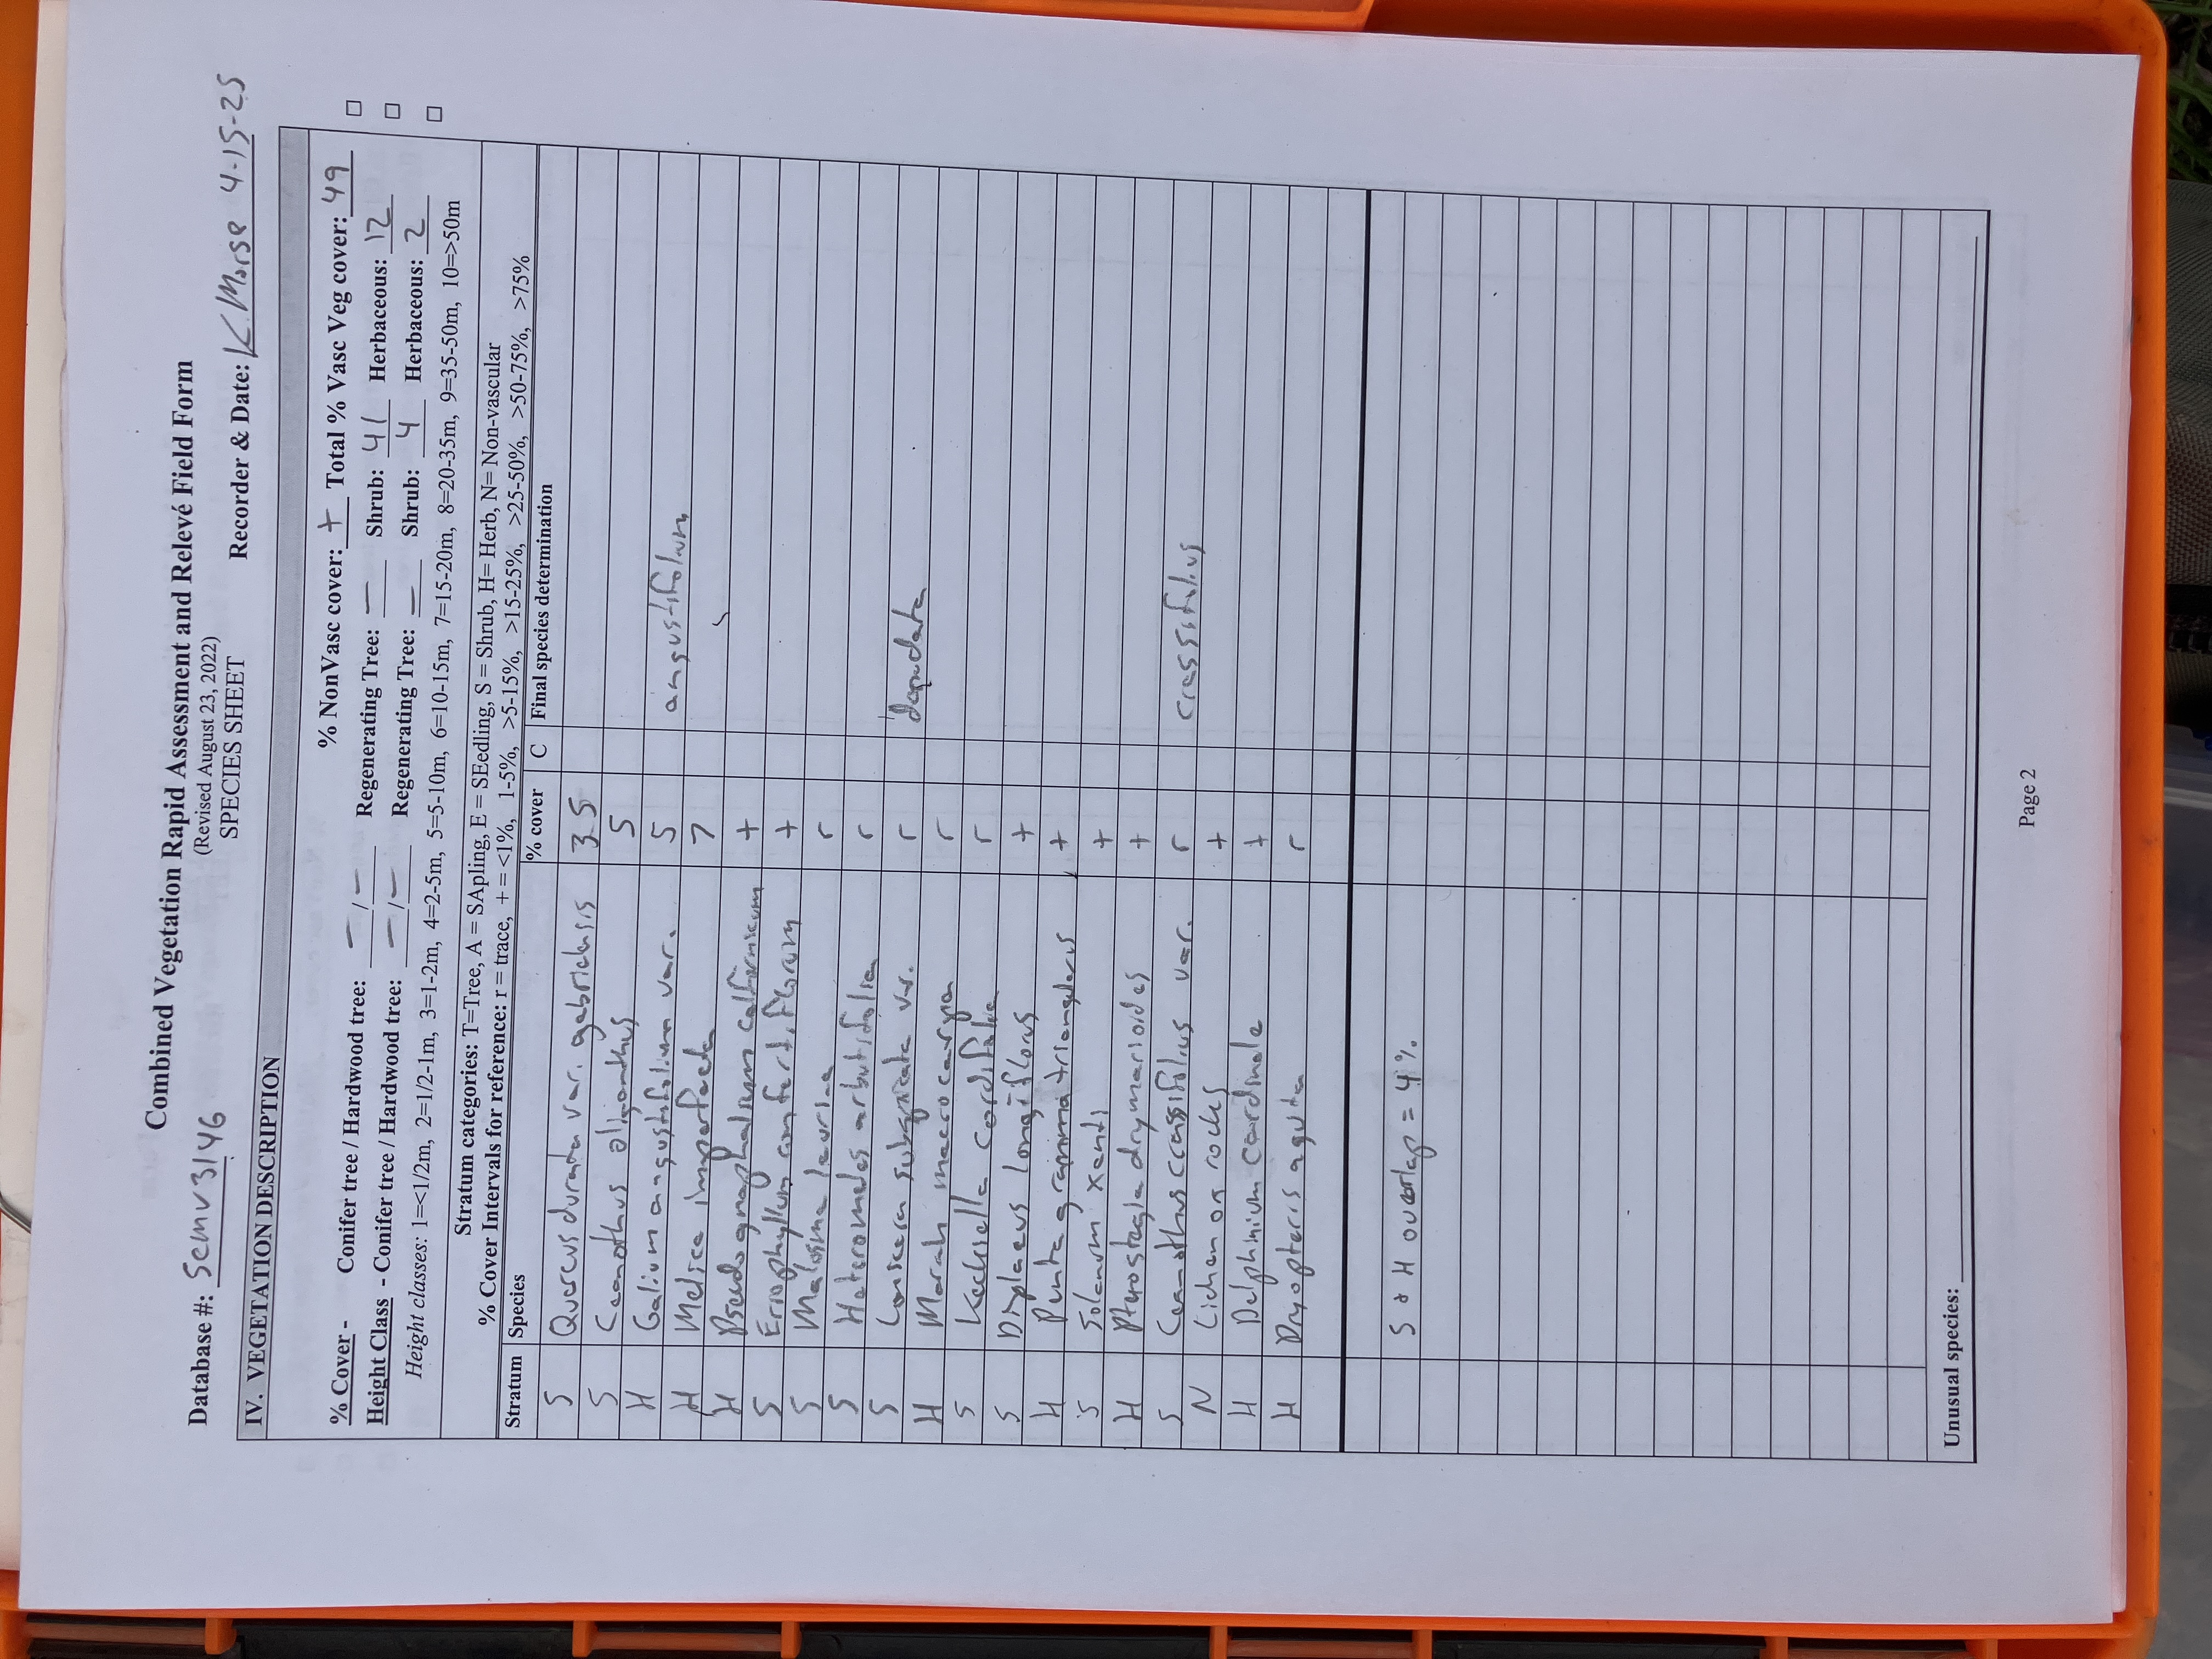 Combined Vegetation Rapid Assessment and Relevé Field Form
(Revised August 23, 2022)
SPECIES SHEET
Database #: SCMV3146 Recorder & Date: K. Morse 4-15-25
IV. VEGETATION DESCRIPTION
% NonVasc cover: + Total % Vasc Veg cover: 49
% Cover - Conifer tree / Hardwood tree: — / — Regenerating Tree: — Shrub: 41 Herbaceous: 12 □
Height Class - Conifer tree / Hardwood tree: — / — Regenerating Tree: — Shrub: 4 Herbaceous: 2 □
Height classes: 1=<1/2m, 2=1/2-1m, 3=1-2m, 4=2-5m, 5=5-10m, 6=10-15m, 7=15-20m, 8=20-35m, 9=35-50m, 10=>50m □
Stratum categories: T=Tree, A = SApling, E = SEedling, S = Shrub, H= Herb, N= Non-vascular
% Cover Intervals for reference: r = trace, + = <1%, 1-5%, >5-15%, >15-25%, >25-50%, >50-75%, >75%
Stratum Species % cover C Final species determination
S Quercus durata var. gabrielensis 35
S Ceanothus oliganthus 5
H Galium angustifolium var. 5 angustifolium
H Melica imperfecta 7
H Pseudognaphalium californicum +
S Eriophyllum confertiflorum +
S Malosma laurina r
S Heteromeles arbutifolia r
S Lonicera subspicata var. r denudata
H Marah macrocarpa r
S Keckiella cordifolia r
S Diplacus longiflorus +
H Pentagramma triangularis +
S Solanum xanti +
H Pterostegia drymarioides +
S Ceanothus crassifolius var. r crassifolius
N Lichen on rocks +
H Delphinium cardinale +
H Dryopteris arguta r
S & H overlap = 4%
Unusual species:
Page 2